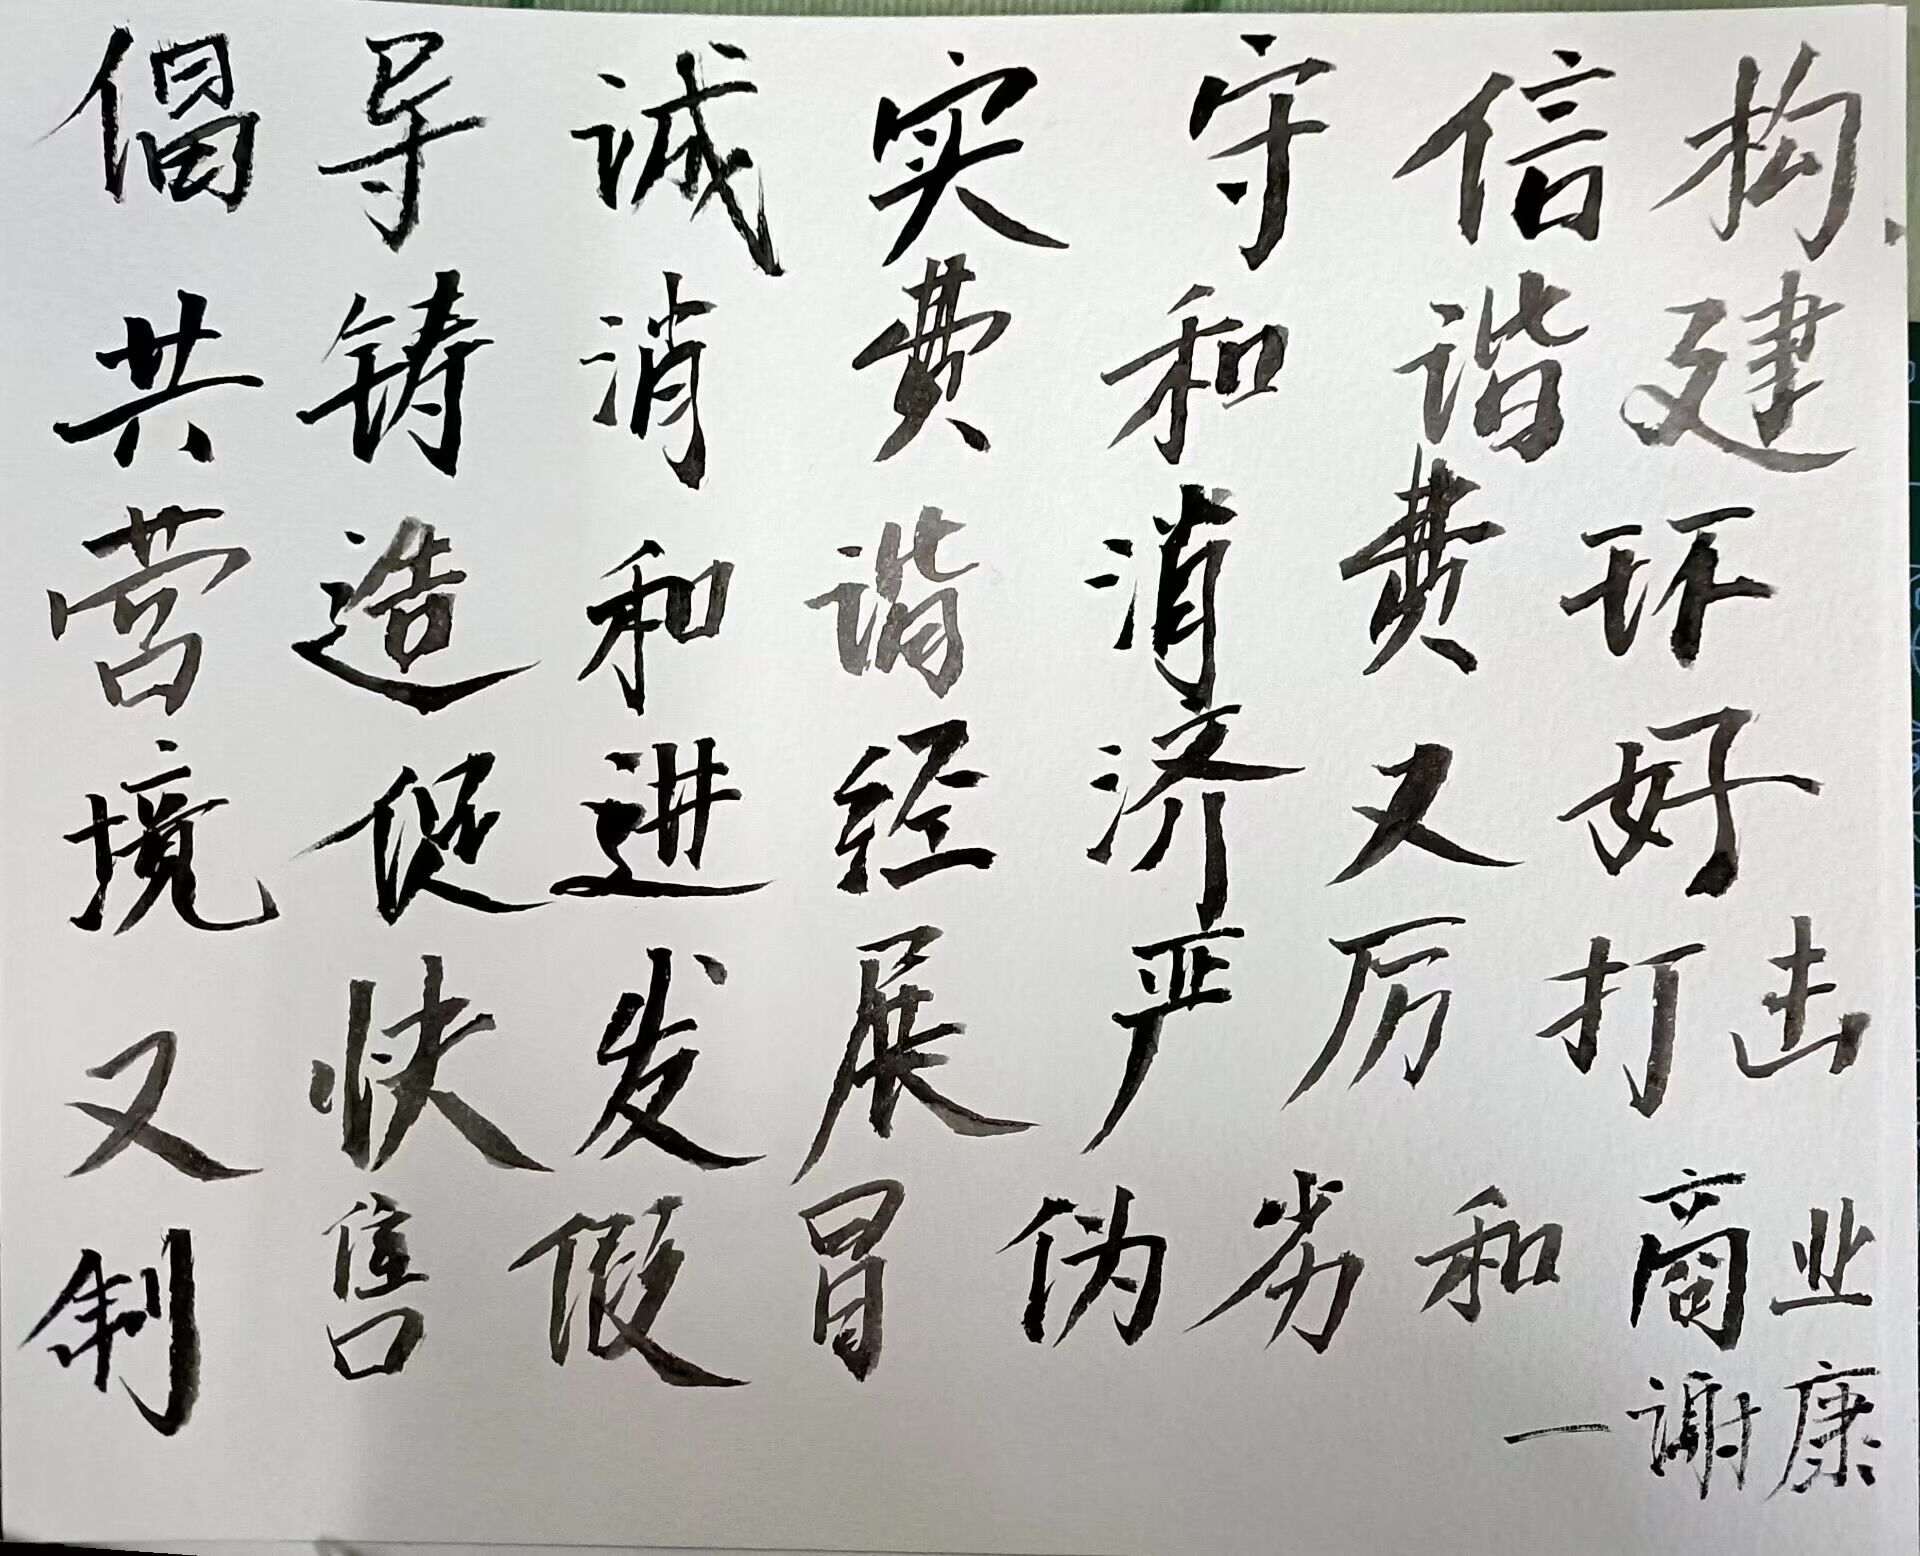 倡导诚实守信构
共铸消费和谐建
营造和谐消费环
境促进经济又好
又快发展严厉打击
制售假冒伪劣和商业
一谢康